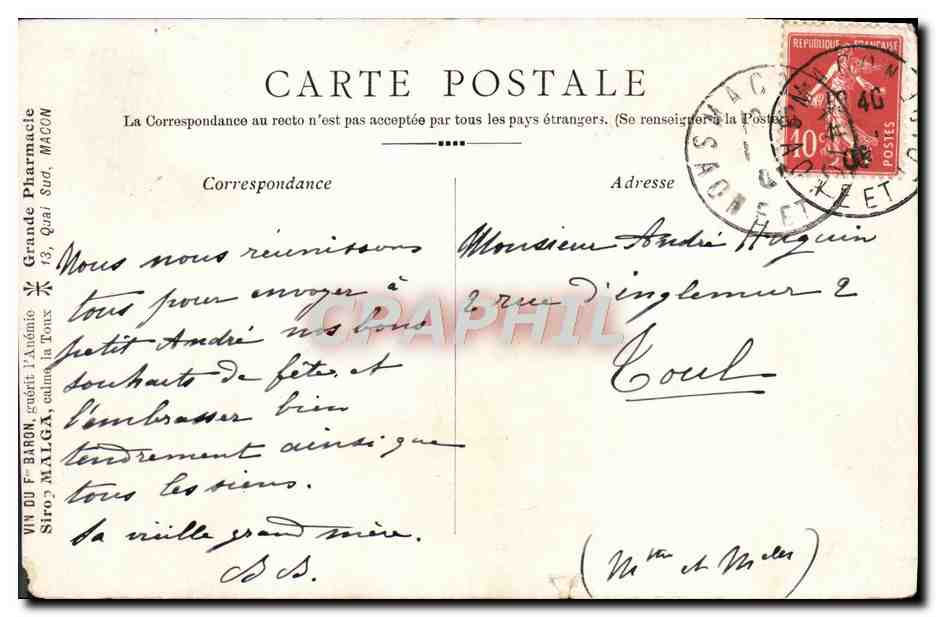 CARTE POSTALE
La Correspondance au recto n'est pas acceptée par tous les pays étrangers. (Se renseigner à la Poste)
Correspondance
Adresse
Nous nous réunissons
tous pour envoyer à
petit André nos bons
souhaits de fête, et
l'embrasser bien
tendrement ainsi que
tous les siens.
Sa vieille grand mère.
B B.
Monsieur André Huguin
2 rue d'inglemur 2
Toul
VIN DU Fre BARON, guérit l'Anémie
Sirop MALGA, calme la Toux
Grande Pharmacie
13, Quai Sud, MACON
REPUBLIQUE FRANÇAISE
10c
POSTES
MACON
SAONE ET
MACON
40
08
SAONE ET
CPAPHIL